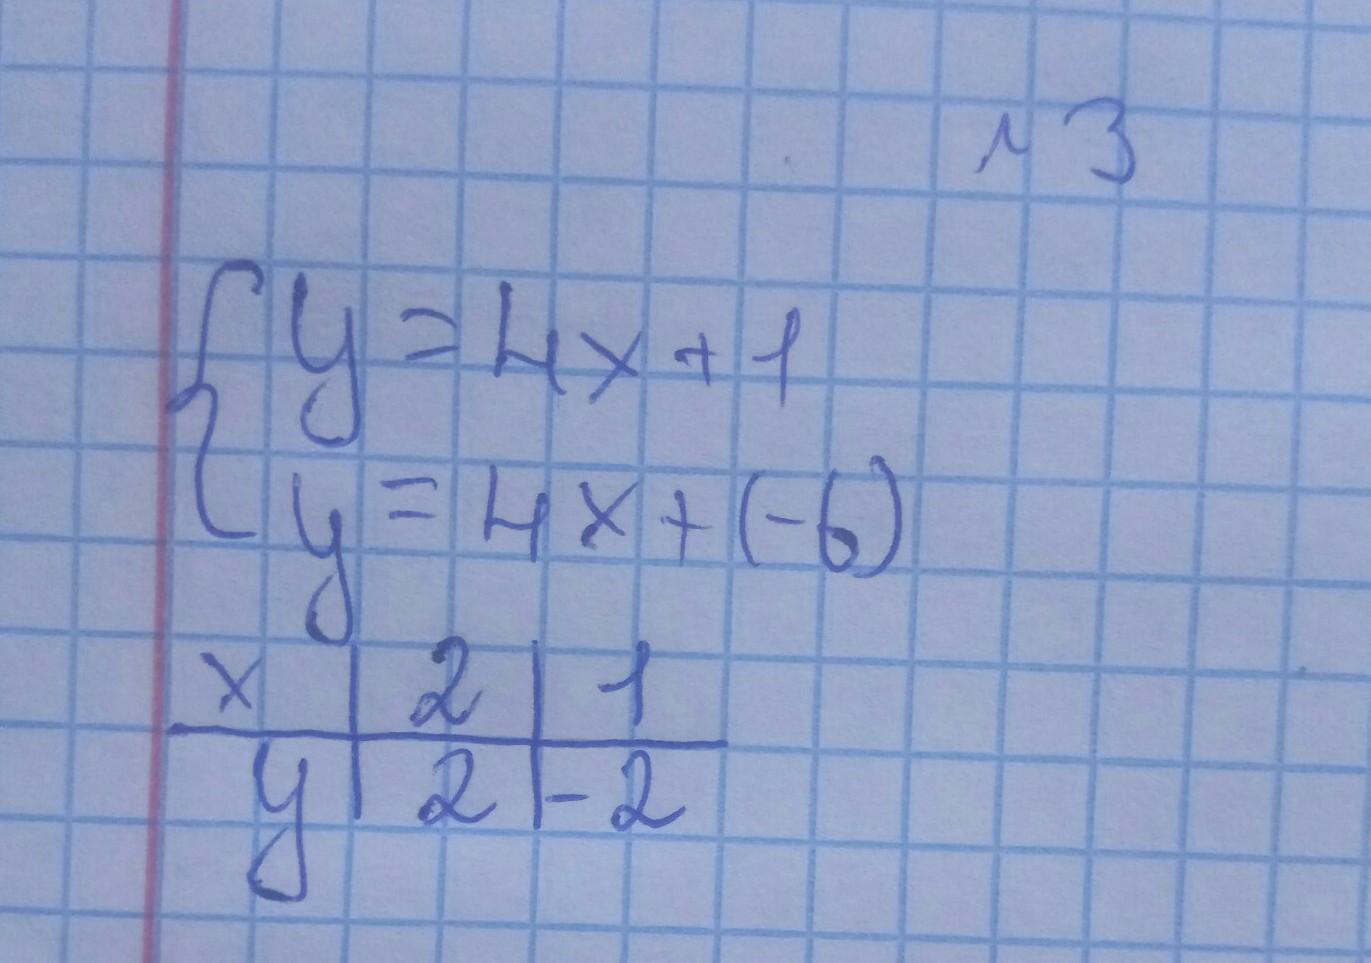 № 3
y = 4x + 1
y = 4x + (-6)
x | 2 | 1
y | 2 | -2